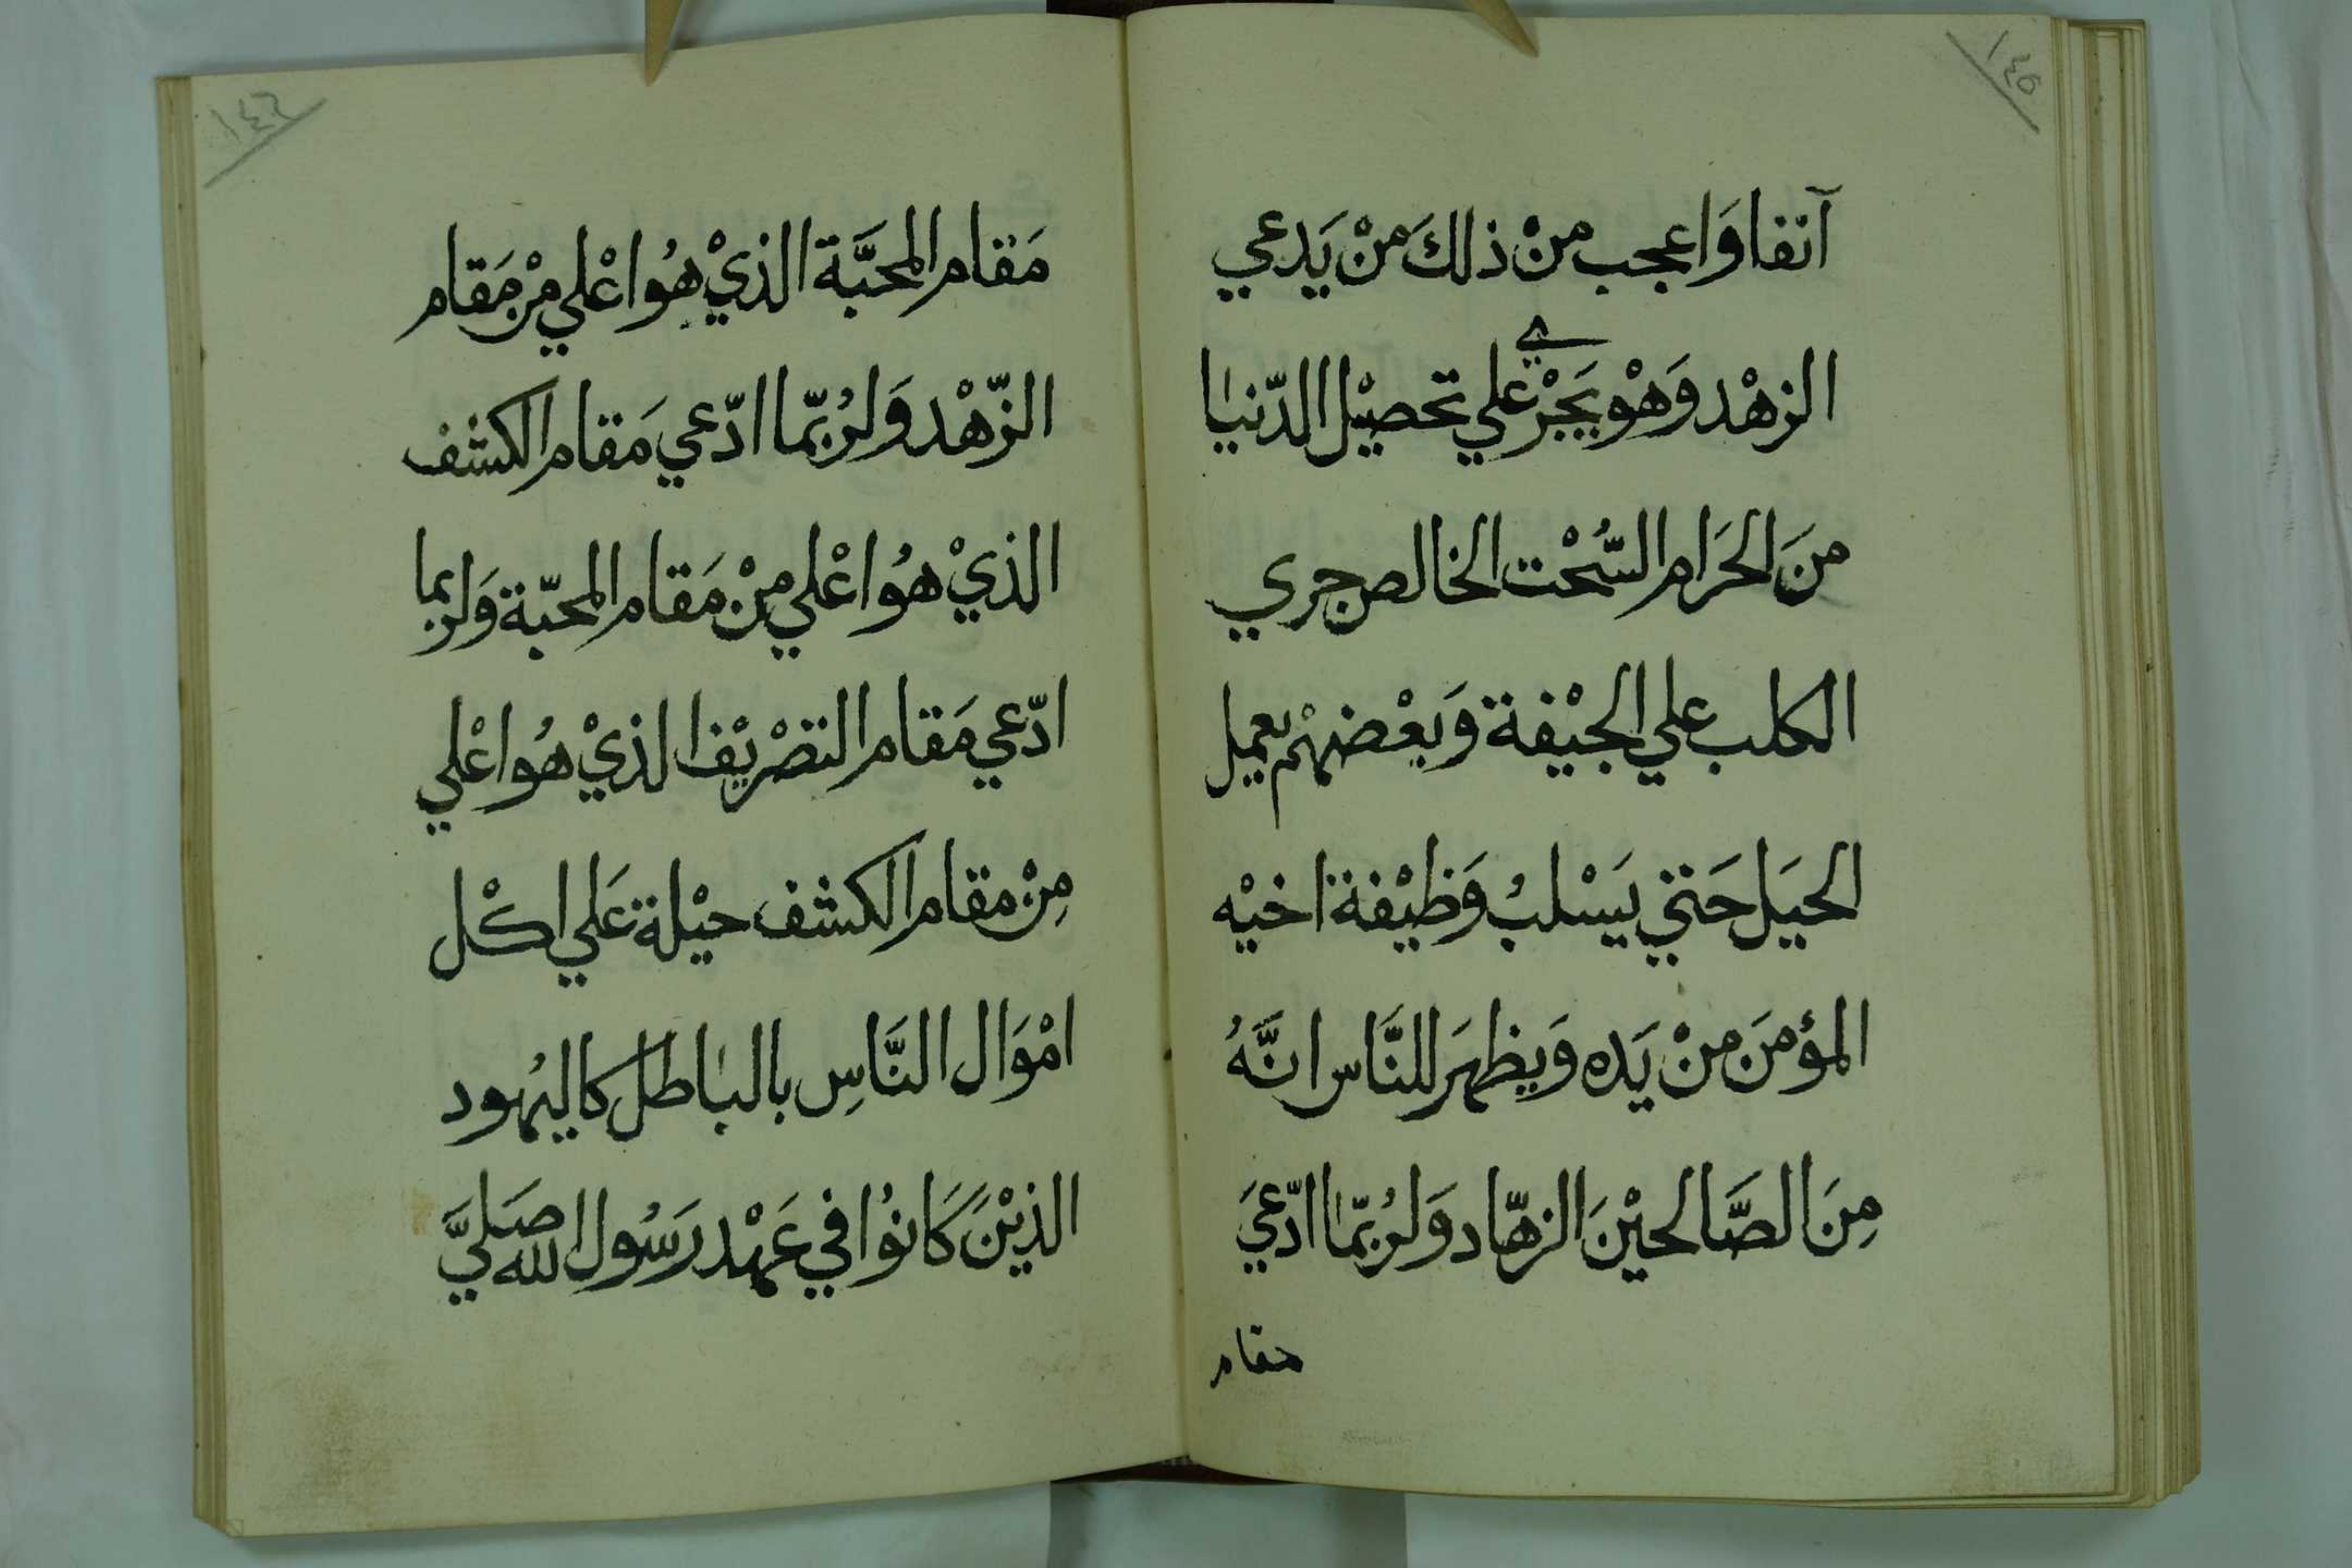 ١٤٥
آنفا وَاعجب منْ ذلكَ منْ يَدعي
الزهْد وَهْو يَجْرْي علي تحصيْل الدّنيا
منَ الحَرَام السُّحْت الخالص جري
الكلب علي الجيْفة وَبعْضهْم يعمل
الحيَل حَتي يَسْلبُ وَظيْفة اخيْه
المؤمنَ منْ يَده وَيظهَر للنَّاس انَّهُ
مِنَ الصَّالحيْنَ الزهّاد وَلرُبّما ادّعيَ
مقام
١٤٦
مَقام المحبَّة الذيْ هُو اعْلي مْن مَقام
الزّهْد وَلرُبّما ادّعي مَقام الكشف
الذيْ هُو اعْلي مِنْ مَقام المحبّة وَلربما
ادّعي مَقام التصْريْف الذيْ هُو اعْلي
مِنْ مقام الكشف حيْلة عَلي اكْل
امْوَال النَّاسِ بالباطل كاليهُود
الذيْنَ كَانوُا في عَهْد رَسُول الله صَليَّ